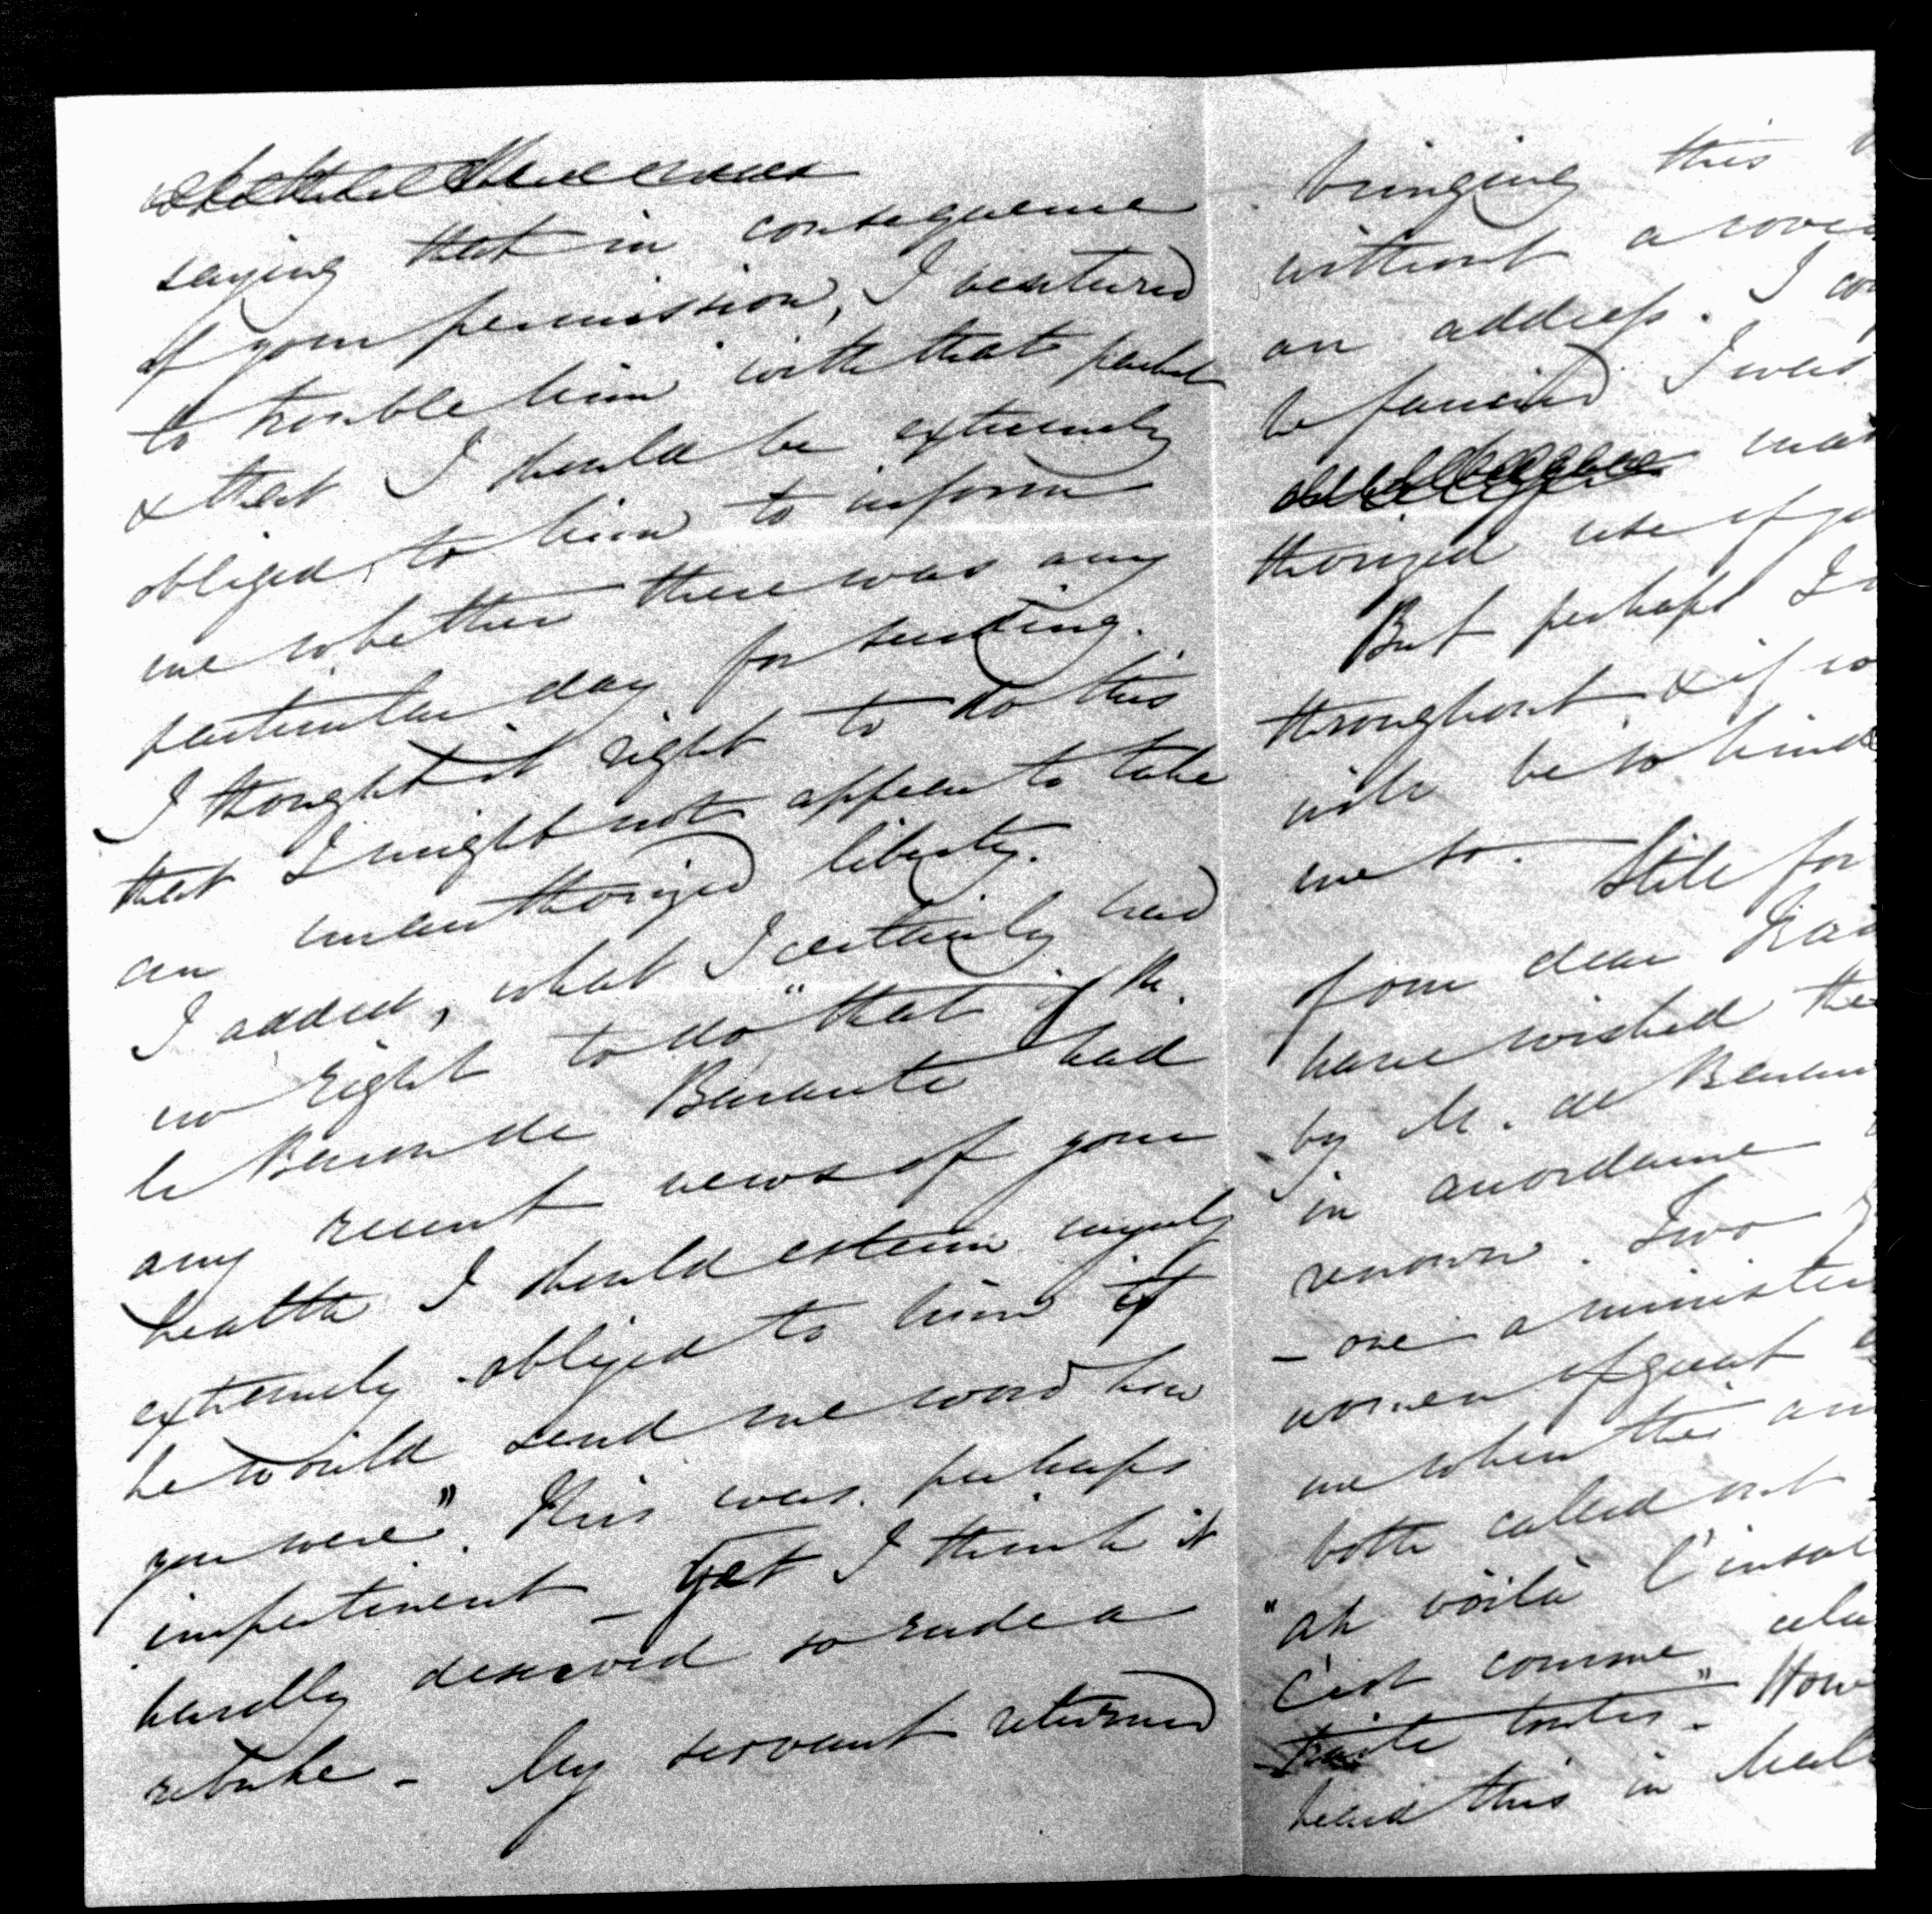 saying that in consequence
of your permission, I ventured
to trouble him with that packet
& that I should be extremely
obliged to him to inform
me whether there was any
particular day for sending.
I thought it right to do this
that I might not appear to take
an unauthorized liberty.
I added, what I certainly had
no right to do "that if M.
le Baron de Barante had
any recent news of your
health I should esteem myself
extremely obliged to him if
he would send me word how
you were". This was perhaps
impertinent – Yet I think it
hardly deserved so rude a
rebuke – My servant returned
bringing this
without a cover
an address. I
he fancied I was
thorized use of
But perhaps I
throughout, & if so
will be so kind
me so. Still for
of our dear
have wished
by M. de
in accordance
renown. Two
– one a minister
women of great
me when this
both called out
"ah voilà
c'est comme cela
traite toutes". How
heard this in